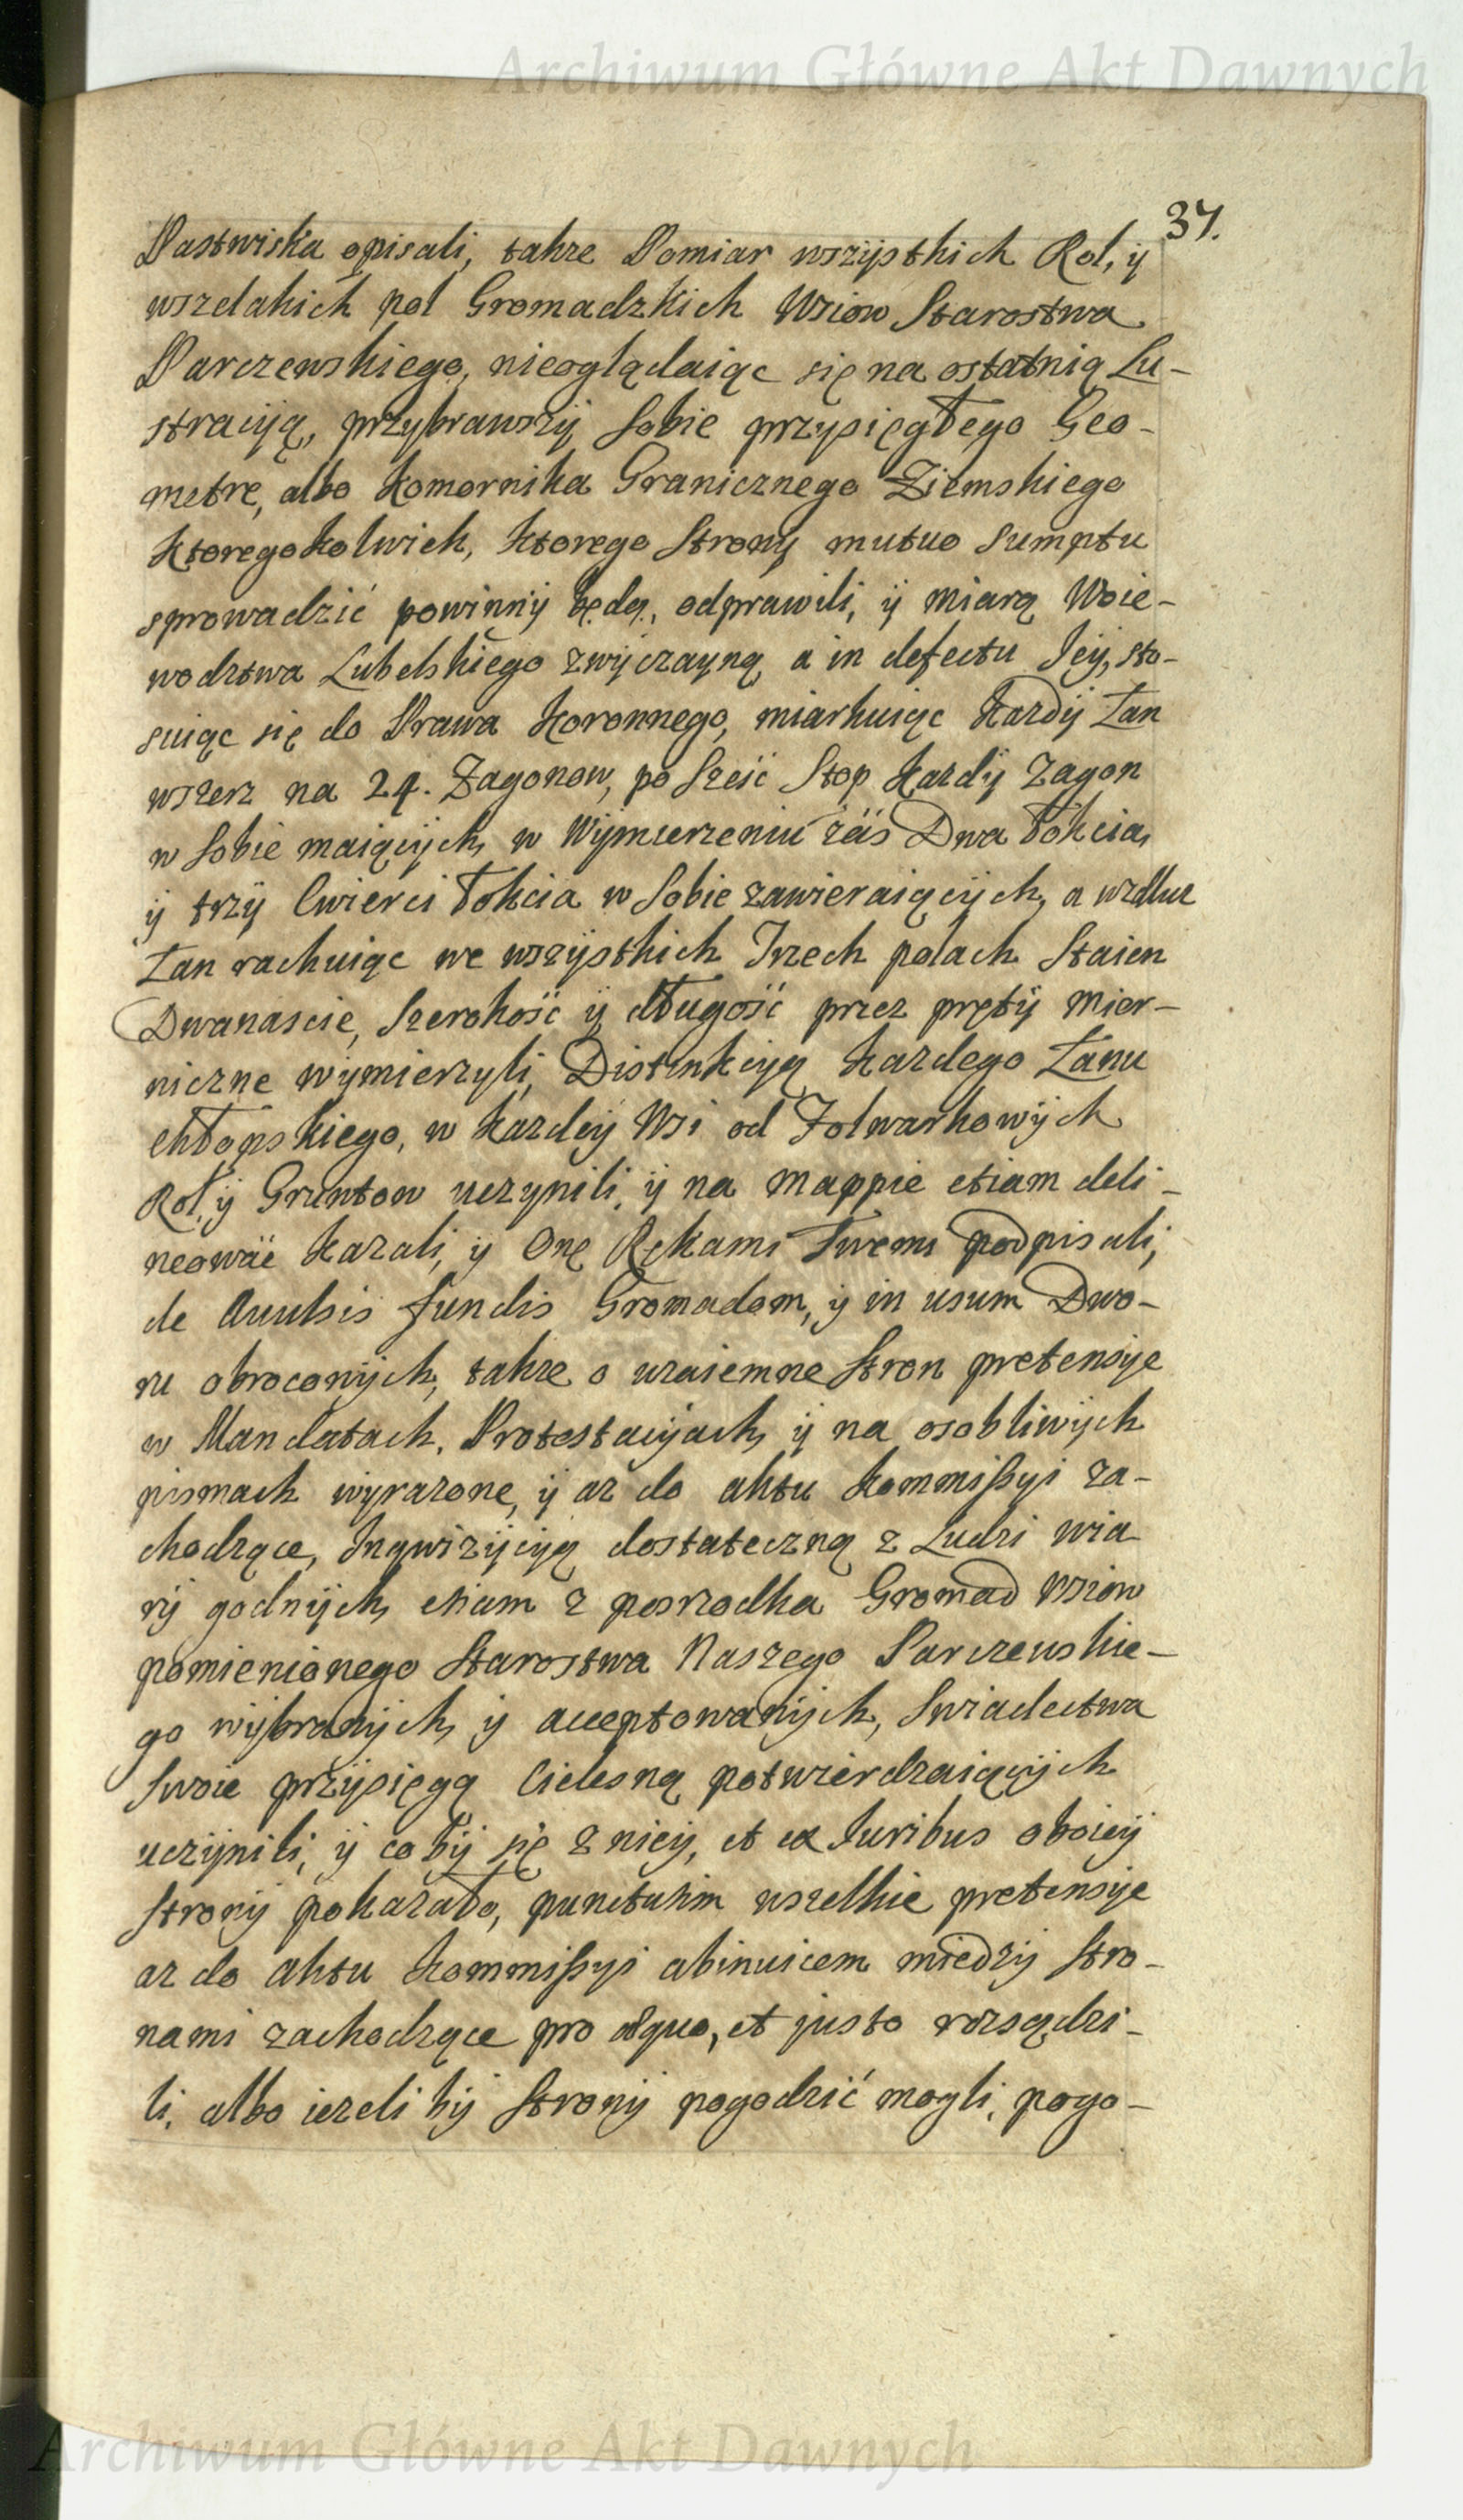 Archiwum Główne Akt Dawnych
37.
Pastwiska opisali, takze Pomiar wszÿstkich Rol, ÿ
wszelakich pol Gromadzkich Wsiow Starostwa
Parczewskiego, nieoglądaiąc się na ostatnią Lu-
stracÿą, przybrawszÿ Sobie przysięgłego Geo-
metrę, albo Komornika Granicznego Ziemskiego
Ktoregokolwiek, ktorego Stronÿ mutuo sumptu
sprowadzić powinnÿ będą, odprawili, ÿ miarą Woie-
wodztwa Lubelskiego zwÿczayną, a in defectu Jeÿ, sto-
suiąc się do Prawa Koronnego, miarkuiąc Kazdÿ Łan
wszerz na 24. Zagonow, po Sześć Stop Kazdÿ Zagon
w Sobie maiącÿch, w Wÿmierzeniu zaś Dwa Łokcia,
ÿ trzÿ Cwierci Łokcia w Sobie zawieraiącÿch, a wzdluz
Łan rachuiąc we wszÿstkich Trzech polach Staien
Dwanascie, Szerokość ÿ długość przez prętÿ Mier-
niczne wymierzyli, Distinkcyą Kazdego Łanu
chłopskiego, w Kazdeÿ Wsi od Folwarkowÿch
Rol, ÿ Gruntow uczynili, ÿ na Mappie etiam deli-
neować Kazali, ÿ Onę Rękami Swemi podpisali,
de Avulsis fundis Gromadom, ÿ in usum Dwo-
ru obroconÿch, takze o wzaiemne Stron pretensÿe
w Mandatach, Protestacÿach, ÿ na osobliwÿch
pismach wÿrazone, ÿ az do aktu Kommißyi za-
chodzące, Inqwizÿcyą dostateczną z Ludzi wia
rÿ godnÿch, etiam z posrzodka Gromad Wsiow
pomienionego Starostwa Naszego Parczewskie-
go wÿbranÿch, ÿ acceptowanÿch, Swiadectwa
Swoie przÿsięgą Cielesną potwierdzaiącÿch
uczÿnili, ÿ co bÿ się z nieÿ, et ex Juribus oboieÿ
Stronÿ pokazało, punctatim wszelkie pretensÿe
az do aktu Kommißyi abinvicem miedzÿ Stro-
nami zachodzące pro æquo, et justo rozsądzi-
li, albo iezeli bÿ Stronÿ pogodzić mogli, pogo-
Archiwum Główne Akt Dawnych